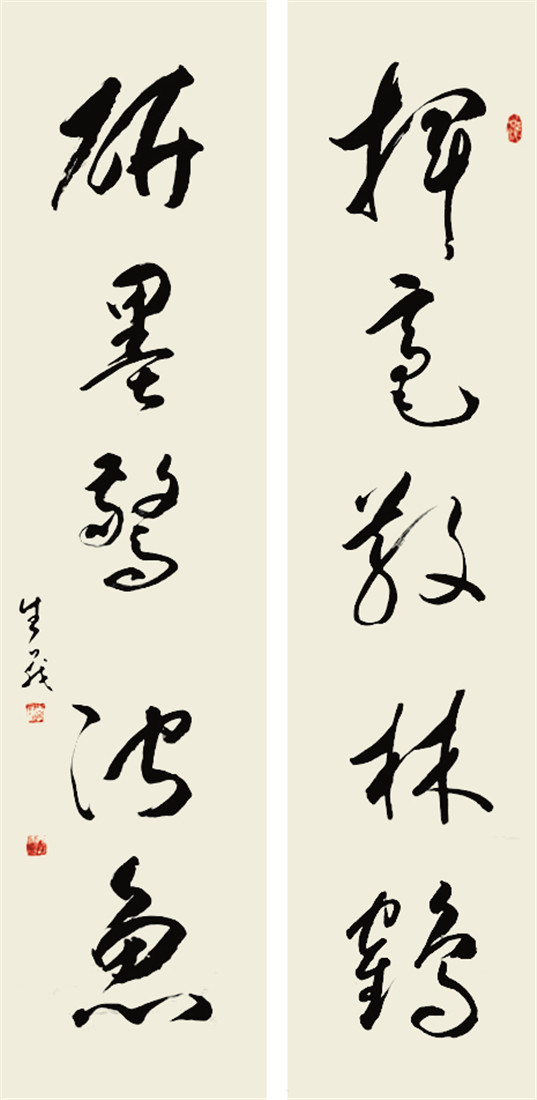 揮毫散林鶴
研墨驚池魚
生義